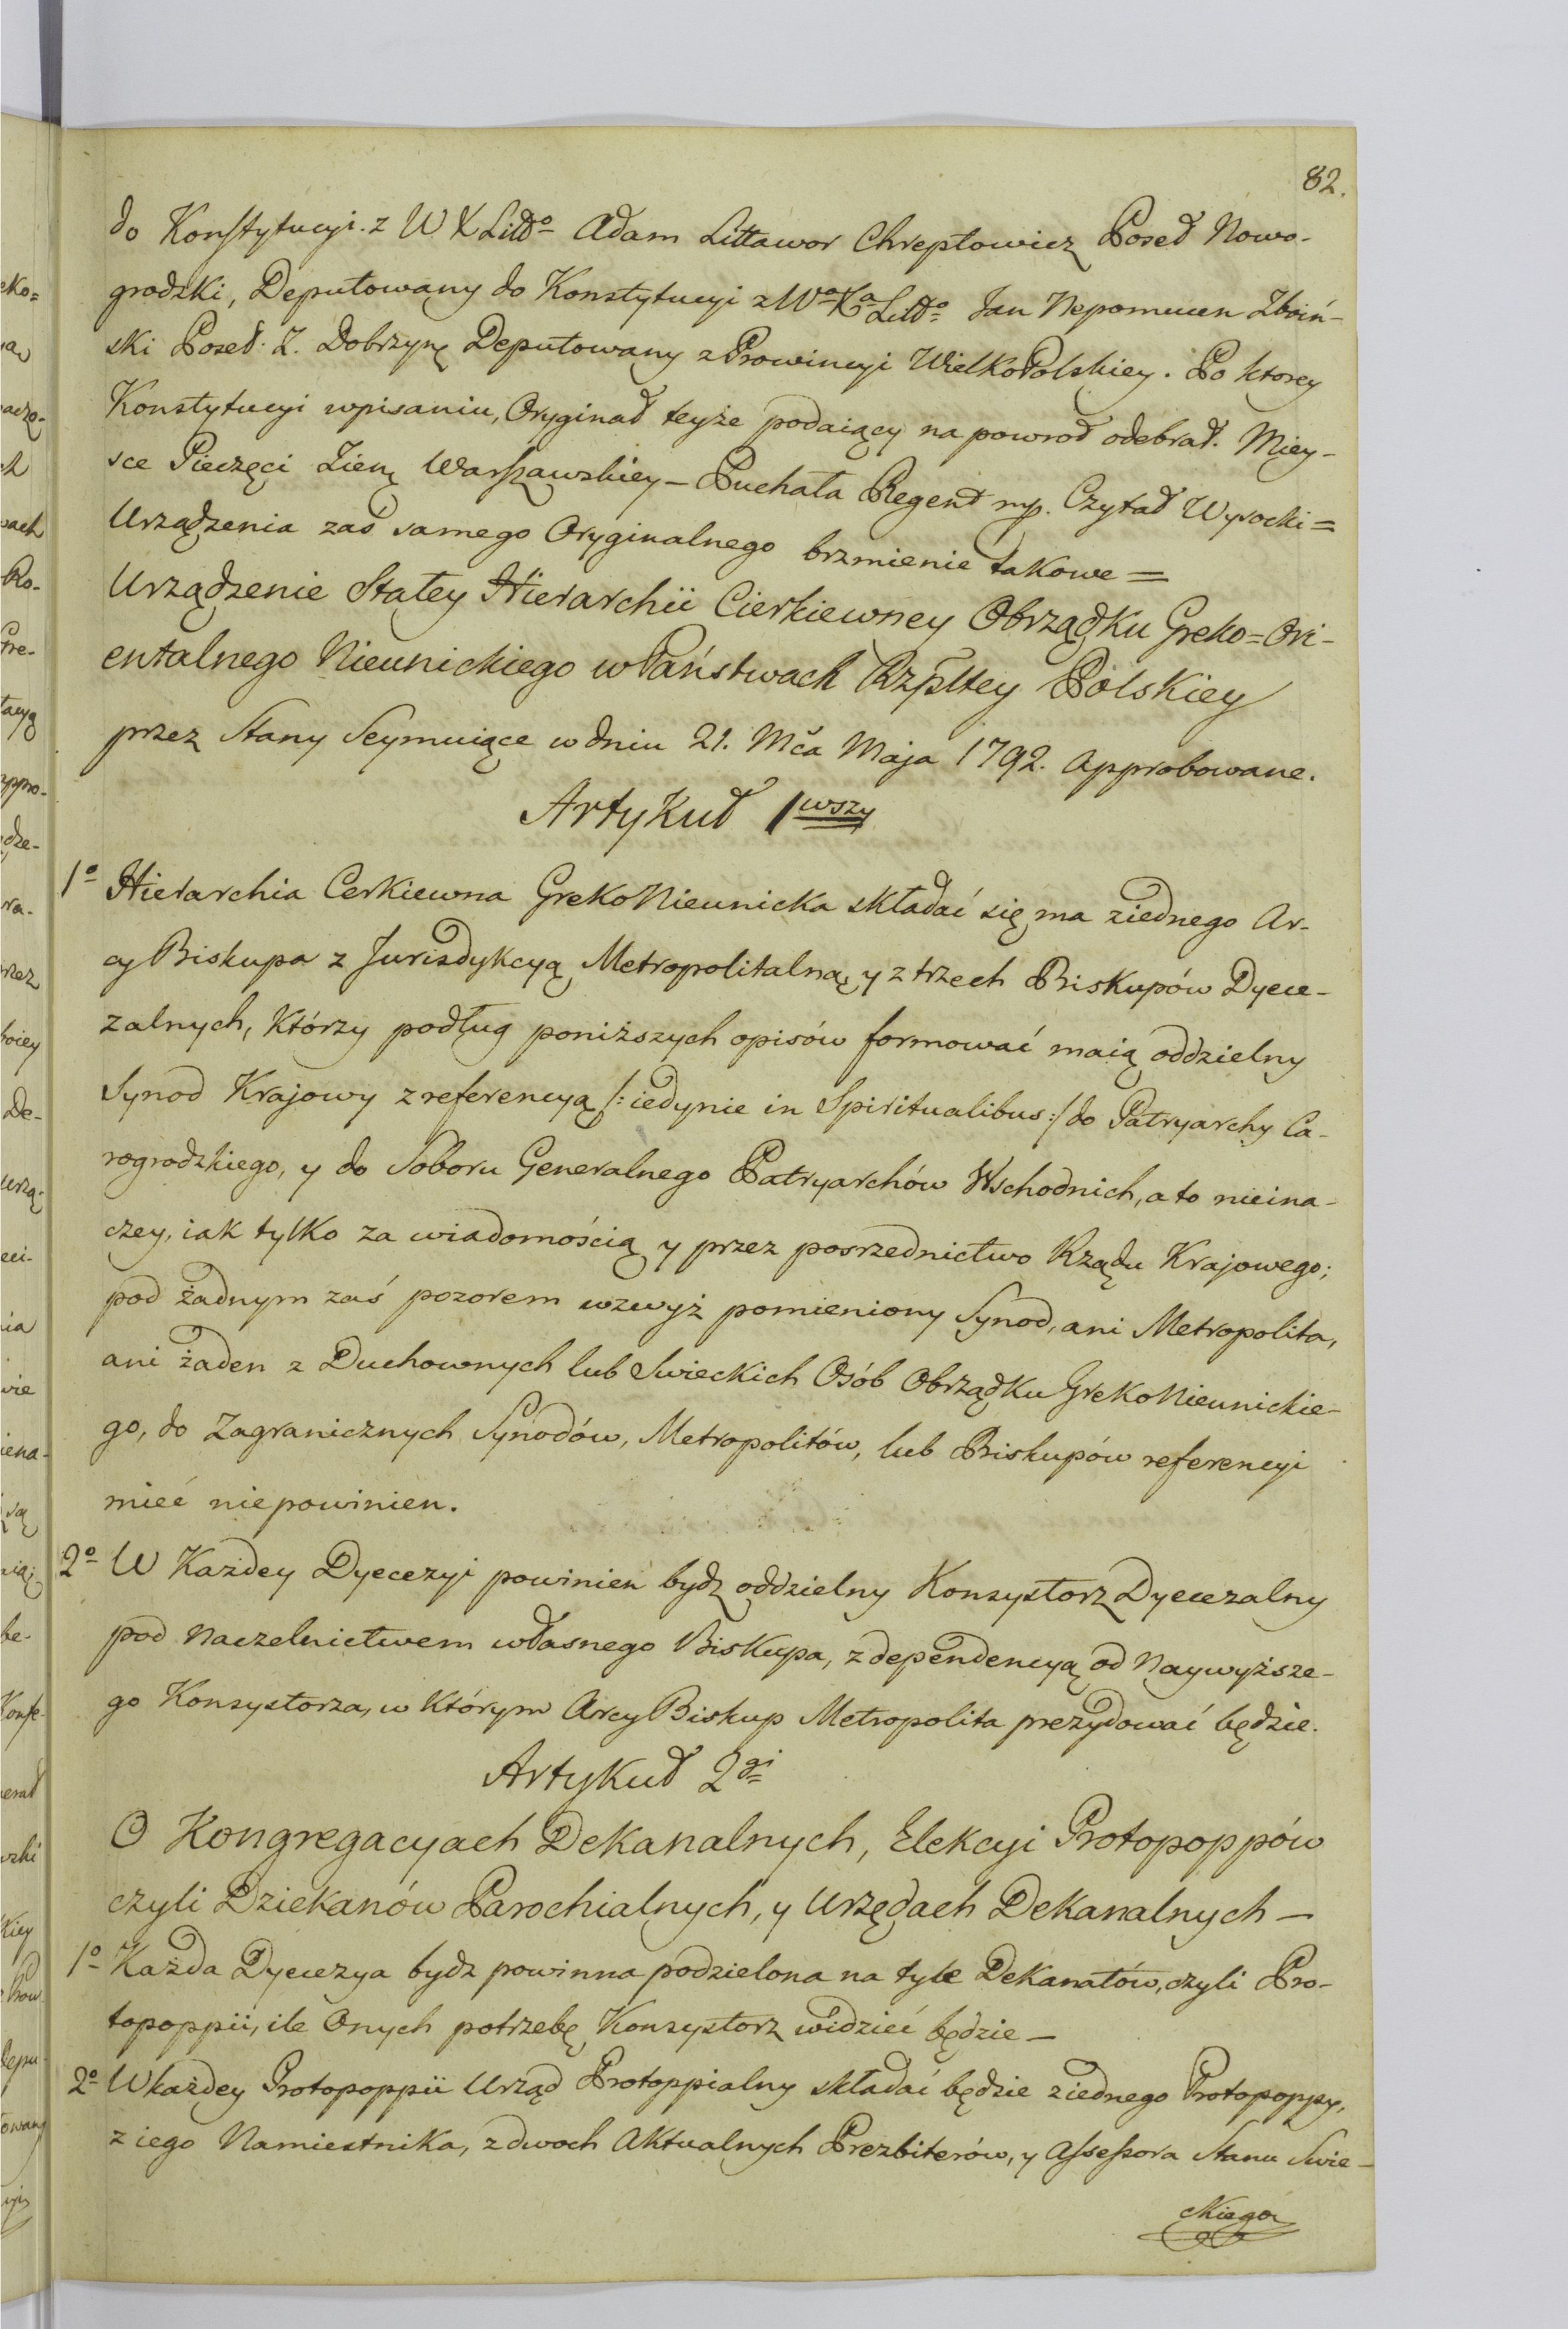 82.
do Konstytucyi. z W X Littº Adam Littawor Chreptowicz Poseł Nowo-
grodzki, Deputowany do Konstytucyi z Wº Xª Littº Jan Nepomucen Zboiń-
ski Poseł. Z. Dobrzyń Deputowany z Prowincyi WielkoPolskiey. Po ktorey
Konstytucyi wpisaniu, Oryginał teyże podaiący na powrot odebrał. Miey-
sce Pieczęci Ziem Warszawskiey – Puchała Regent mp. Czytał Wysocki =
Urządzenia zaś samego Oryginalnego brzmienie takowe =
Urządzenie Stałey Hierarchii Cierkiewney Obrządku Greko=Ori-
entalnego Nieunickiego w Państwach Rzpltey Polskiey
przez Stany Seymuiące w dniu 21. Mca Maja 1792. Approbowane.
Artykuł 1wszy
1º Hierarchia Cerkiewna GrekoNieunicka składać się ma ziednego Ar-
cyBiskupa z Jurisdykcyą Metropolitalną y z trzech Biskupów Dyece-
zalnych, którzy podług poniższych opisów formować maią oddzielny
Synod Krajowy z referencyą /: iedynie in Spiritualibus :/ do Patryarchy Ca-
rogrodzkiego, y do Soboru Generalnego Patryarchów Wschodnich, a to nieina-
czey, iak tylko za wiadomością y przez posrzednictwo Rządu Krajowego;
pod żadnym zaś pozorem wzwyż pomieniony Synod, ani Metropolita,
ani żaden z Duchownych lub Swieckich Osób Obrządku GrekoNieunickie-
go, do Zagranicznych Synodów, Metropolitów, lub Biskupów referencyi
mieć niepowinien.
2º W Każdey Dyecezyi powinien bydz oddzielny Konsystorz Dyecezalny
pod Naczelnictwem własnego Biskupa, z dependencyą od Naywyższe-
go Konsystorza, w którym ArcyBiskup Metropolita prezydować będzie.
Artykuł 2gi
O Kongregacyach Dekanalnych, Elekcyi Protopoppów
czyli Dziekanów Parochialnych, y Urzędach Dekanalnych —
1º Każda Dyecezya bydz powinna podzielona na tyle Dekanatów, czyli Pro-
topoppii, ile Onych potrzebę Konsystorz widzieć będzie —
2º W każdey Protopoppii Urząd Protoppialny składać będzie ziednego Protopoppy,
z iego Namiestnika, z dwoch Aktualnych Prezbiterów, y Assessora Stanu Swie-
ckiego